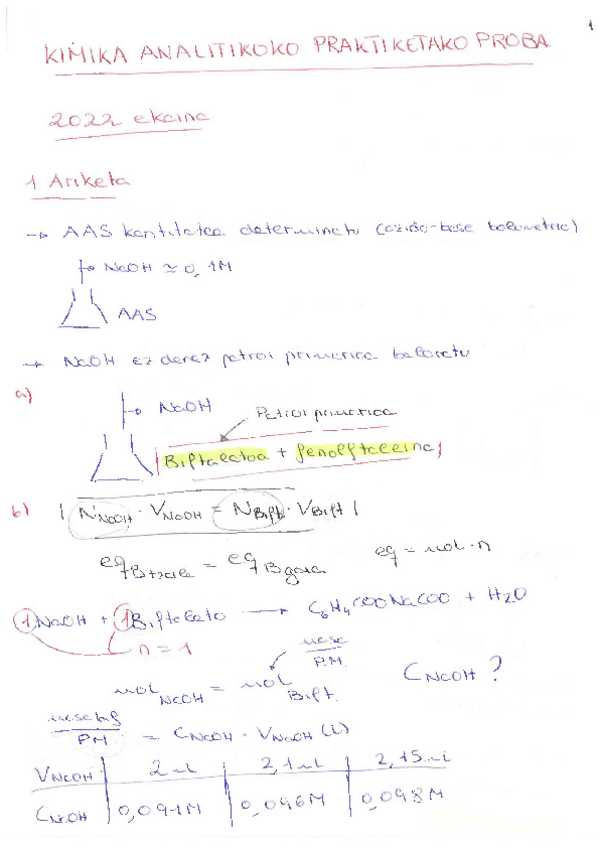 1
KIMIKA ANALITIKOKO PRAKTIKETAKO PROBA
2022 ekaina
1 Ariketa
→ AAS kantitatea determinatu (azido-base bolumetria)
NaOH ≃ 0,1M
AAS
→ NaOH ez denez patroi primarioa baloratu
a)
NaOH
Patroi primarioa
Biftalatoa + fenolftaleina
b) | N NaOH · V NaOH = N Bift · V Bift |
eq B = eq B eq = mol · n
1 NaOH + 1 Biftalato → C6H4COONaCOO + H2O
n = 1
masa
P.M.
mol NaOH = mol Bift. C NaOH ?
masa bif
PM = C NaOH · V NaOH (L)
V NaOH | 2 mL | 2,1 mL | 2,15 mL
C NaOH | 0,091M | 0,096M | 0,098M